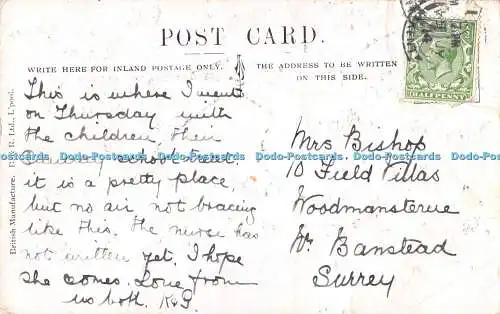 POST CARD.
WRITE HERE FOR INLAND POSTAGE ONLY.
THE ADDRESS TO BE WRITTEN
ON THIS SIDE.
This is where I went
on Thursday with
the children their
Sunday school treat
it is a pretty place,
but no air not bracing
like this. The nurse has
not written yet. I hope
she comes. Love from
us both.
Mrs Bishop
10 Field Villas
Woodmansterne
Nr. Banstead
Surrey
British Manufacture. Ltd., L'pool.
Dodo-Postcards Dodo-Postcards Dodo-Postcards Dodo-Postcards